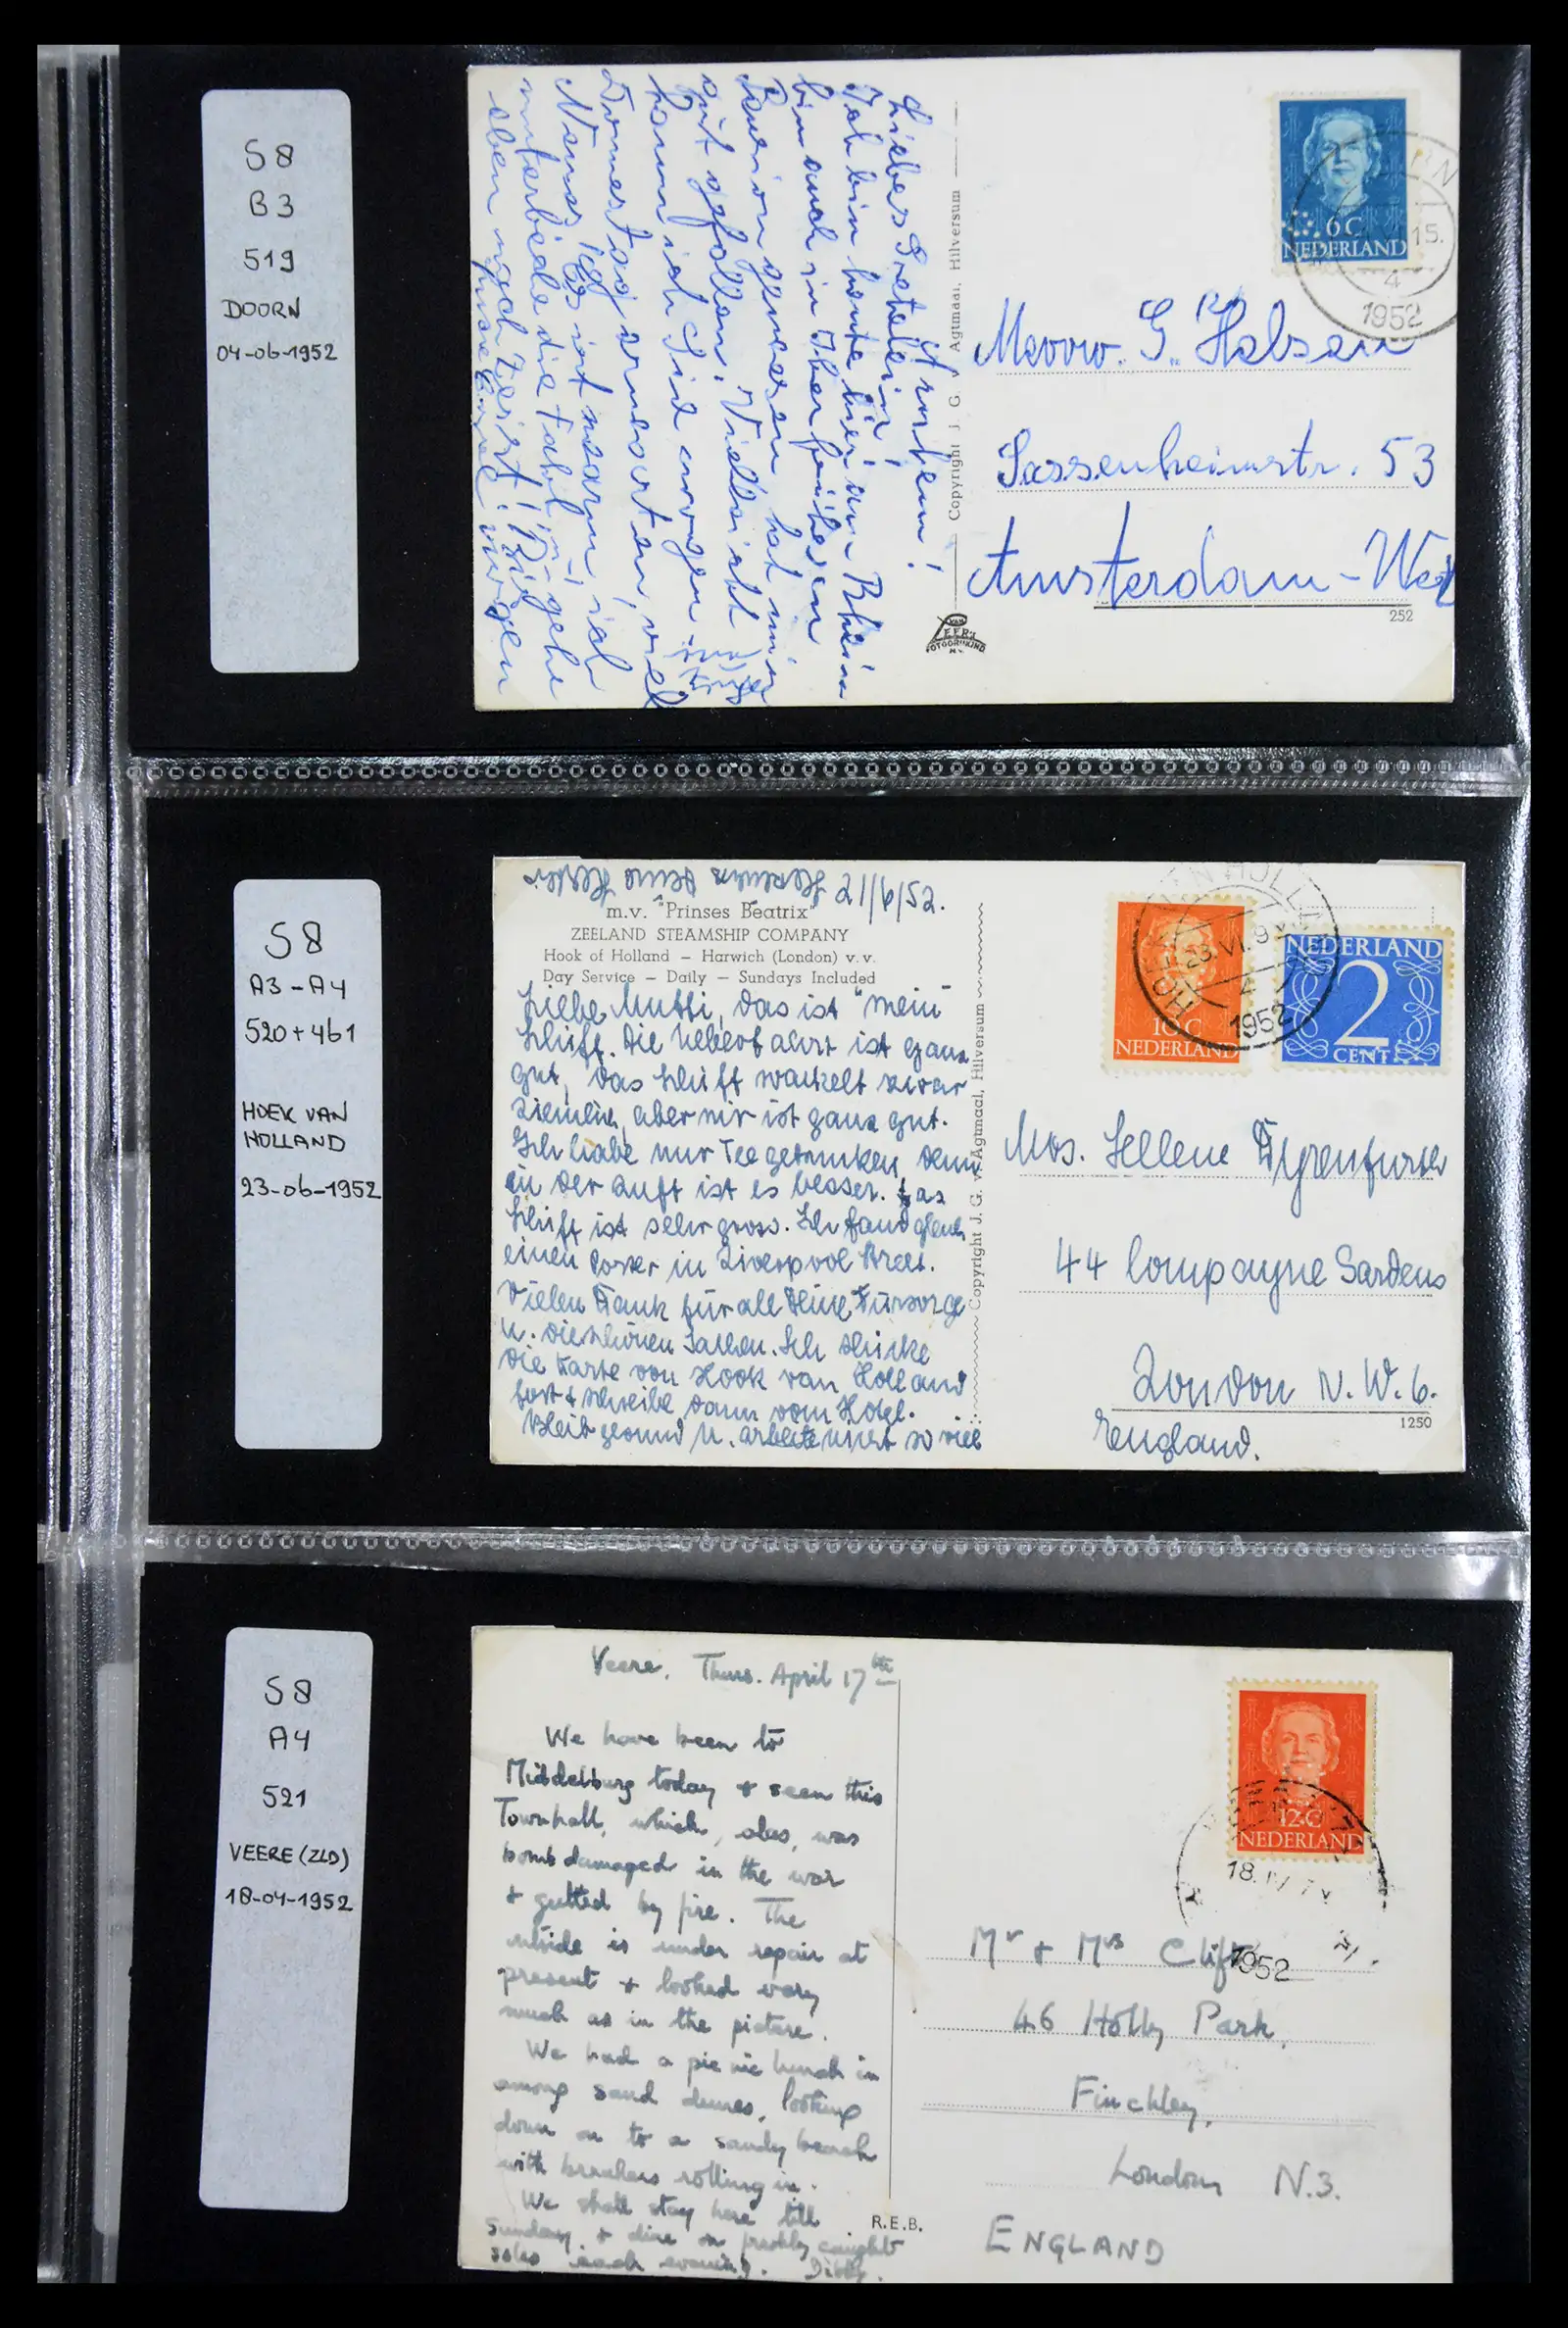 S8
B3
519
DOORN
04-06-1952
Arnhem!
Liebes Gretelein!
Ich bin heute hier am Rhein
bin auch in
gewesen hat mir
gut gefallen. Vielleicht
kann ich Sie morgen
Donnerstag
Neues ist warm, ich
unterbreche die Fahrt, gehe
eben nach Zeist!
Copyright J. G. v. Agtmaal, Hilversum
6C
NEDERLAND
15.
4
1952
Mevvw. G. Halsain
Sassenheimstr. 53
Amsterdam-West
252
VAN LEER'S
FOTODRUKIND
N.V.
S8
A3-A4
520+461
HOEK VAN
HOLLAND
23-06-1952
21/6/52.
m.v. "Prinses Beatrix"
ZEELAND STEAMSHIP COMPANY
Hook of Holland – Harwich (London) v.v.
Day Service – Daily – Sundays Included
Liebe Mutti, das ist "mein
Schiff. Die Ueberfahrt ist ganz
gut, das Schiff wackelt zwar
ziemlich, aber mir ist ganz gut.
Ich habe nur Tee getrunken, denn
in der Luft ist es besser. Das
Schiff ist sehr gross. Ich fand gleich
einen Porter in Liverpool Street.
Vielen Dank für all Deine Fürsorge
u. die schönen Sachen. Ich schicke
die Karte von Hook van Holland
fort & schreibe dann vom Hotel.
Bleib gesund u. arbeite nicht so viel
Herzlichst Deine
Copyright J. G. v. Agtmaal, Hilversum
10C
NEDERLAND
HOEK VAN HOLLAND
23.VI.9
4
1952
NEDERLAND
2
CENT
Mrs. Hellene
44 Compayne Gardens
London N.W.6.
England.
1250
S8
A4
521
VEERE (ZLD)
18-04-1952
Veere. Thurs. April 17th
We have been to
Middelburg today + seen this
Townhall, which, alas, was
bomb damaged in the war
+ gutted by fire. The
outside is under repair at
present + looked very
much as in the picture.
We had a picnic lunch in
among sand dunes, looking
down on to a sandy beach
with breakers rolling in.
We shall stay here till
Sunday, + dine on freshly caught
soles each evening.
R.E.B.
12C
NEDERLAND
18.IV 7
1952
Mr + Mrs Clift
46 Holly Park,
Finchley,
London N.3.
ENGLAND